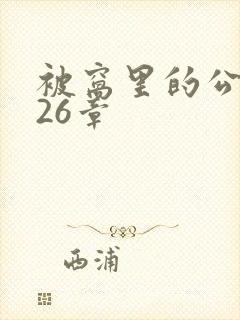 被窝里的公
26章
西浦